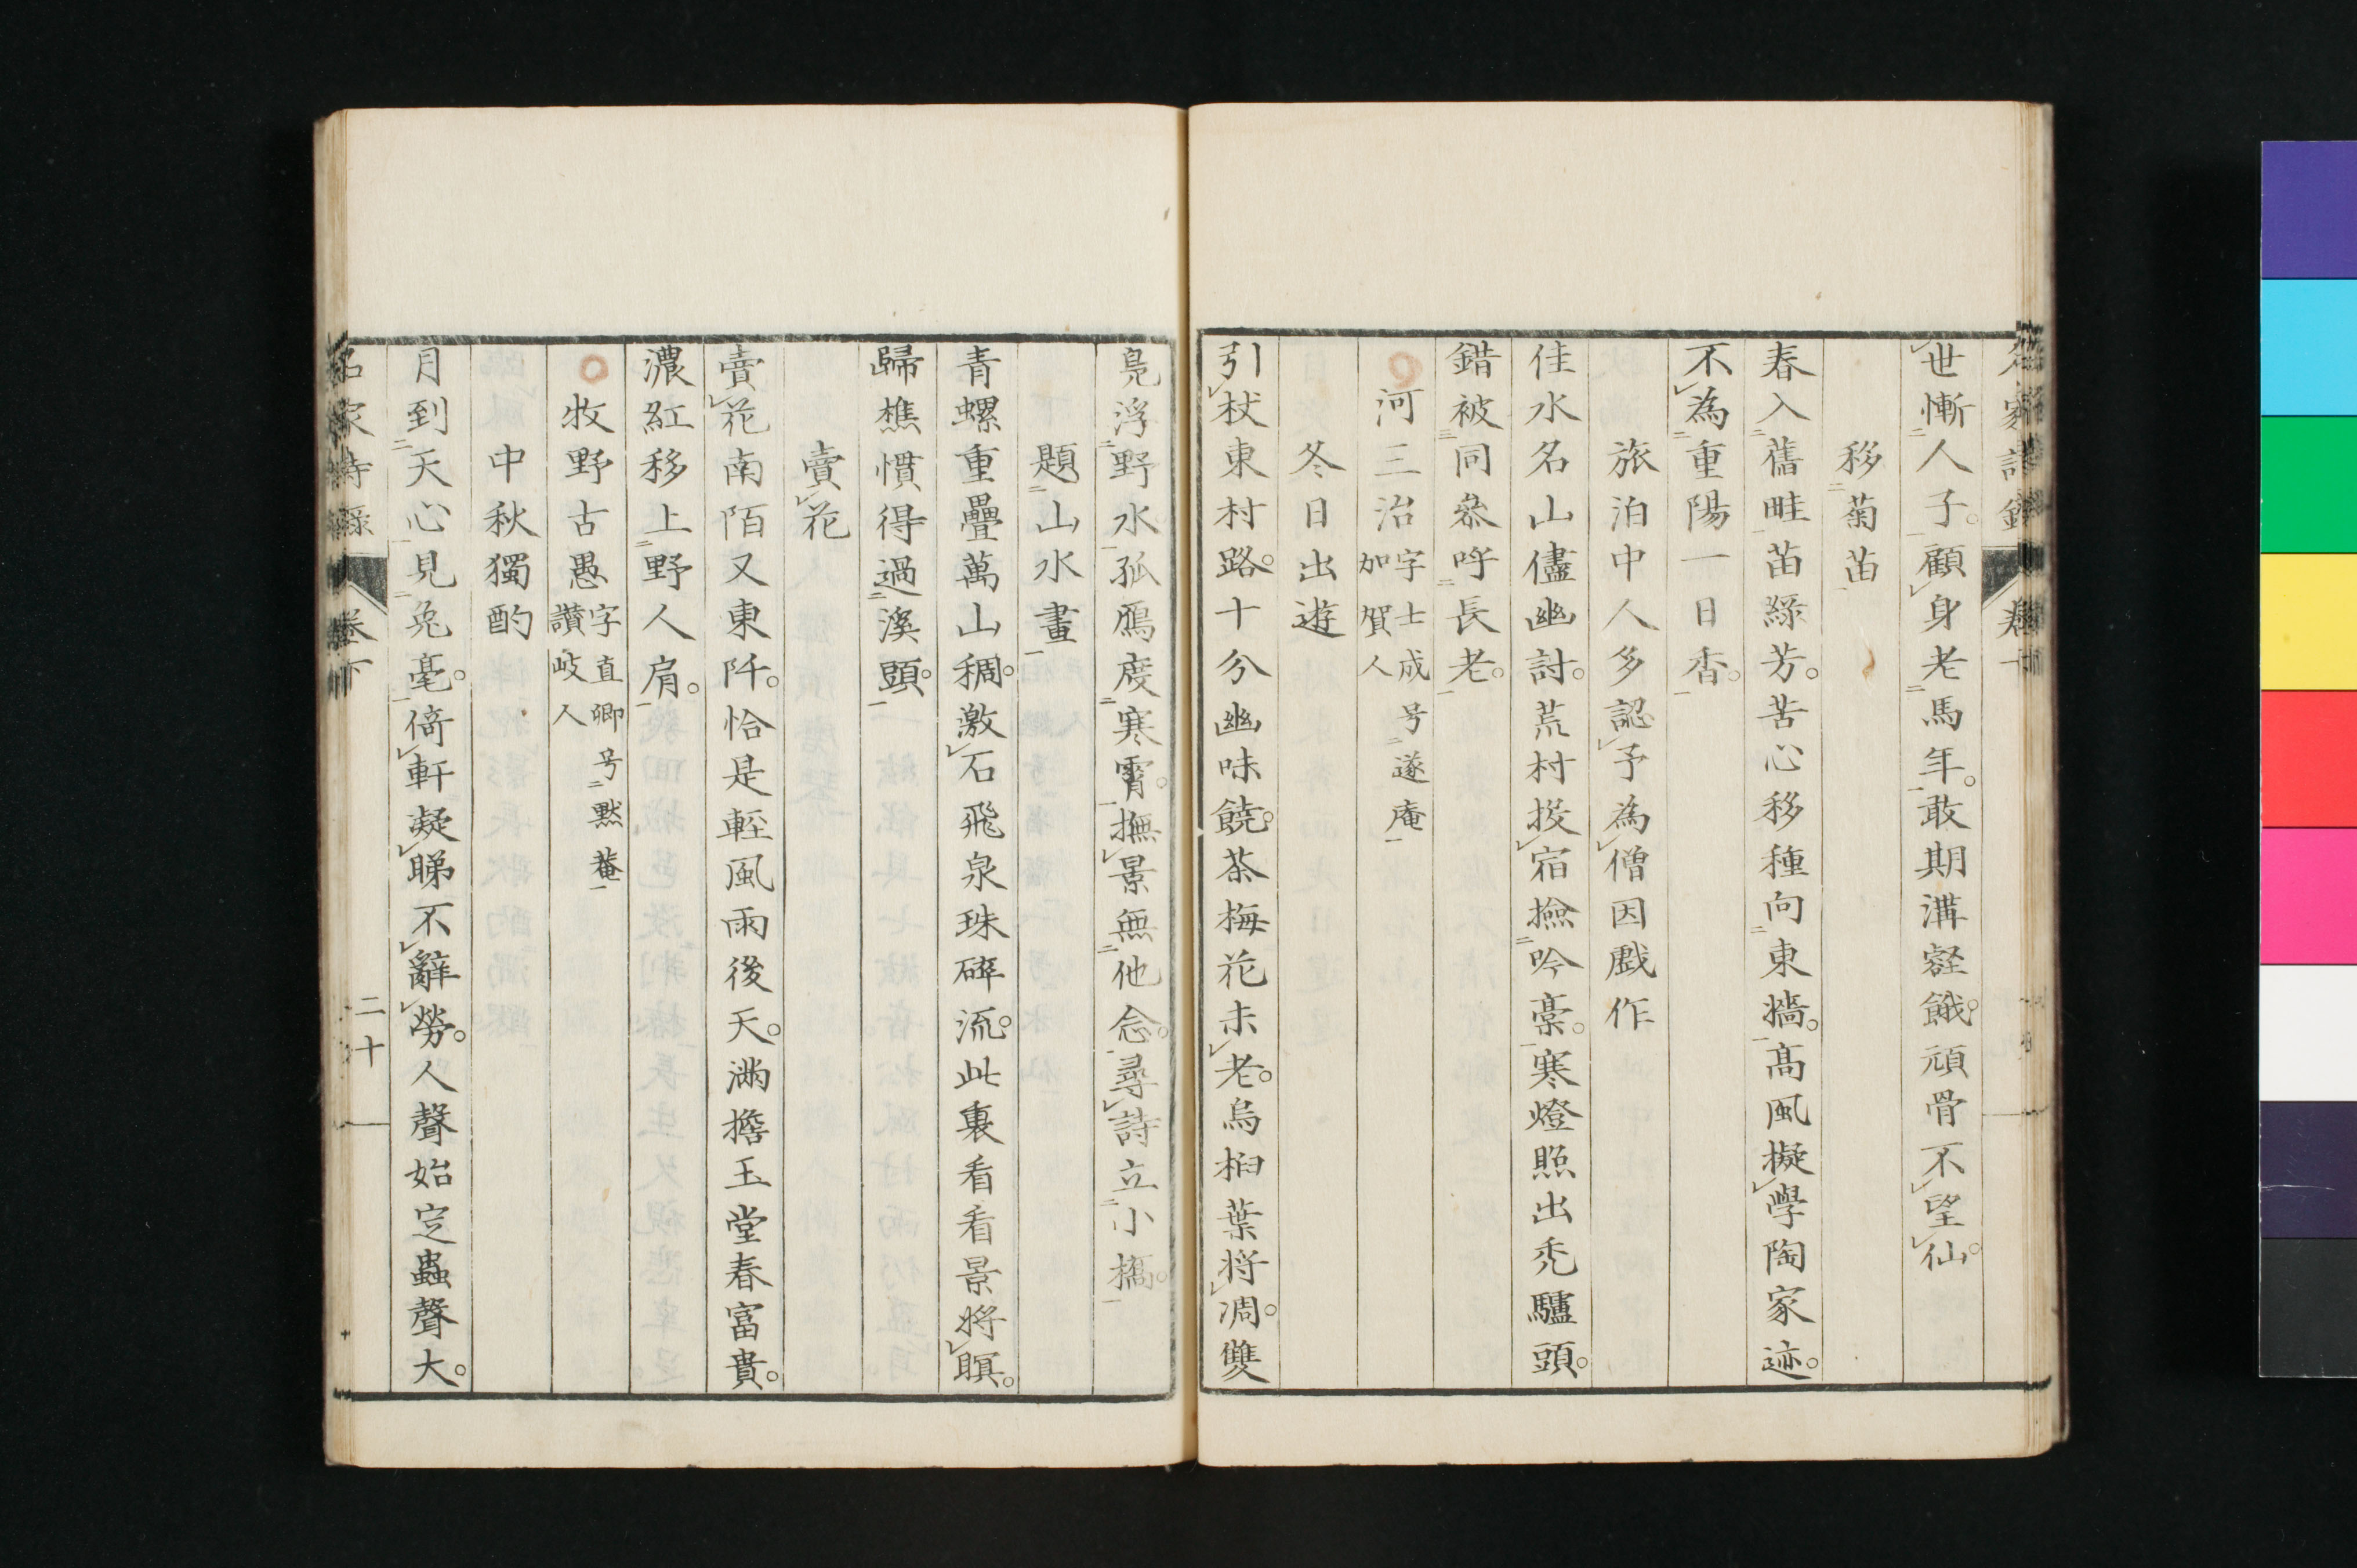 世慚人子。顧身老馬年。敢期溝壑餓。頑骨不望仙。
移菊苗
春入舊畦苗緑芳。苦心移種向東牆。高風擬學陶家迹。
不為重陽一日香。
旅泊中人多認予為僧因戲作
佳水名山儘幽討。荒村投宿撿吟稾。寒燈照出禿驢頭。
錯被同叅呼長老。
河三治 字士成号遂庵 加賀人
冬日出遊
引杖東村路。十分幽味饒。茶梅花未老。烏桕葉将凋。雙
鳬浮野水孤鴈度寒霄。撫景無他念。尋詩立小橋。
題山水畫
青螺重疊萬山稠。激石飛泉珠碎流。此裏看看景将瞑。
歸樵慣得過溪頭。
賣花
賣花南陌又東阡。恰是輕風雨後天。滿擔玉堂春富貴。
濃紅移上野人肩。
牧野古愚 字直卿号黙菴 讃岐人
中秋獨酌
月到天心見兔毫。倚軒凝睇不辭勞。人聲始定蟲聲大。
名家詩録 卷下 二十